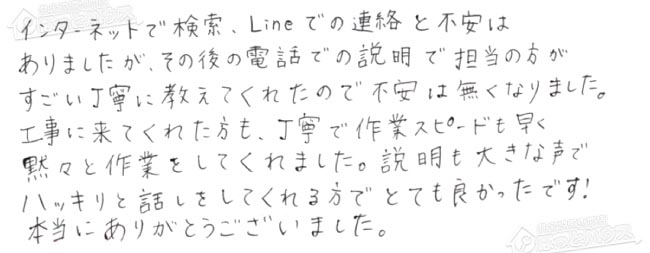 インターネットで検索、Lineでの連絡と不安は
ありましたが、その後の電話での説明で担当の方が
すごい丁寧に教えてくれたので不安は無くなりました。
工事に来てくれた方も、丁寧で作業スピードも早く
黙々と作業をしてくれました。説明も大きな声で
ハッキリと話しをしてくれる方でとても良かったです!
本当にありがとうございました。